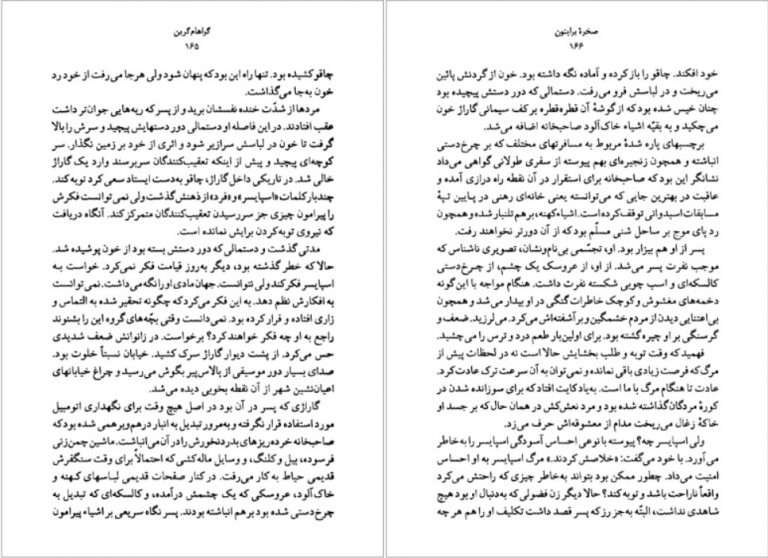 گراهام گرین
۱۶۵
چاقو کشیده بود. تنها راه این بود که پنهان شود ولی هرجا می‌رفت از خود رد
خون به‌جا می‌گذاشت.
مردها از شدّت خنده نفسشان برید و از پسر که ریه‌هایی جوان‌تر داشت
عقب افتادند. در این فاصله او دستمالی دور دستهایش پیچید و سرش را بالا
گرفت تا خون در لباسش سرازیر شود و اثری از خود بر زمین نگذار. سر
کوچه‌ای پیچید و پیش از اینکه تعقیب‌کنندگان سربرسند وارد یک گاراژ
خالی شد. در تاریکی داخل گاراژ، چاقو به‌دست ایستاد سعی کرد توبه کند.
چندبار کلمات «اسپایسر» و «فرد» از ذهنش گذشت ولی نمی‌توانست فکرش
را پیرامون چیزی جز سررسیدن تعقیب‌کنندگان متمرکز کند. آنگاه دریافت
که نیروی توبه‌کردن برایش نمانده است.
مدتی گذشت و دستمالی که دور دستش بسته بود از خون پوشیده شد.
حالا که خطر گذشته بود، دیگر به‌روز قیامت فکر نمی‌کرد. خواست به
اسپایسر فکر کند ولی نتوانست. جهان مادی او را نگه می‌داشت. نمی‌توانست
به افکارش نظم دهد. به این فکر می‌کرد که چگونه تحقیر شده به التماس و
زاری افتاده و فرار کرده بود. نمی‌دانست وقتی بچّه‌های گروه این را بشنوند
راجع به او چه فکر خواهند کرد؟ برخواست. در زانوانش ضعف شدیدی
حس می‌کرد. از پشت دیوار گاراژ سرک کشید. خیابان نسبتاً خلوت بود.
صدای بسیار دور موسیقی از پالاس‌پیر بگوش می‌رسید و چراغ خیابانهای
اعیان‌نشین شهر از آن نقطه بخوبی دیده می‌شد.
گاراژی که پسر در آن بود در اصل هیچ وقت برای نگهداری اتومبیل
مورد استفاده قرار نگرفته و به‌مرور تبدیل به انبار درهم‌وبرهمی شده بود که
صاحبخانه خرده‌ریزهای بدردنخورش را در آن می‌انباشت. ماشین چمن‌زنی
فرسوده، بیل و کلنگ، و وسایل ماله‌کشی که احتمالاً برای وقت سنگفرش
قدیمی حیاط به کار می‌رفت. در کنار صفحات قدیمی لباسهای کهنه و
خاک‌آلود، عروسکی که یک چشمش درآمده، و کالسکه‌ای که تبدیل به
چرخ‌دستی شده بود برهم انباشته بودند. پسر نگاه سریعی بر اشیاء پیرامون
صخرهٔ برایتون
۱۶۶
خود افکند. چاقو را باز کرده و آماده نگه داشته بود. خون از گردنش پائین
می‌ریخت و در لباسش فرو می‌رفت. دستمالی که دور دستش پیچیده بود
چنان خیس شده بود که از گوشهٔ آن قطره‌قطره بر کف سیمانی گاراژ خون
می‌چکید و به بقیّه اشیاء خاک‌آلود صاحبخانه اضافه می‌شد.
برچسبهای پاره شدهٔ مربوط به مسافرتهای مختلف که بر چرخ‌دستی
انباشته و همچون زنجیره‌ای بهم پیوسته از سفری طولانی گواهی می‌داد
نشانگر این بود که صاحبخانه برای استقرار در آن نقطه راه درازی آمده و
عاقبت در بهترین جایی که می‌توانسته یعنی خانه‌ای رهنی در پایین تپهٔ
مسابقات اسبدوانی توقف کرده است. اشیاء کهنه، برهم تلنبار شده و همچون
رد پای موج بر ساحل شنی مسلّم بود که از آن دورتر نخواهند رفت.
پسر از او هم بیزار بود. او، تجسّمی بی‌نام‌ونشان، تصویری ناشناس که
موجب نفرت پسر می‌شد. از او، از عروسک یک چشم، از چرخ‌دستی
کالسکه‌ای و اسب چوبی شکسته نفرت داشت. هنگام مواجه با این‌گونه
دخمه‌های مغشوش و کوچک خاطرات گنگی در او بیدار می‌شد و همچون
بی‌اعتنایی دیدن از مردم خشمگین و برآشفته‌اش می‌کرد. می‌لرزید. ضعف و
گرسنگی بر او چیره گشته بود. برای اولین‌بار طعم درد و ترس را می‌چشید.
فهمید که وقت توبه و طلب بخشایش حالا است نه در لحظات پیش از
مرگ که فرصت زیادی باقی نمانده و نمی‌توان به آن سرعت ترک عادت کرد.
عادت تا هنگام مرگ با ما است. به‌یاد کایت افتاد که برای سوزانده شدن در
کورهٔ مردگان گذاشته شده بود و مرد نعش‌کش در همان حال که بر جسد او
خاکهٔ زغال می‌ریخت مدام از معشوقه‌اش حرف می‌زد.
ولی اسپایسر چه؟ پیوسته با نوعی احساس آسودگی اسپایسر را به‌خاطر
می‌آورد. با خود می‌گفت: «خلاصش کردند.» مرگ اسپایسر به او احساس
امنیت می‌داد. چطور ممکن بود بتواند به‌خاطر چیزی که راحتش می‌کرد
واقعاً ناراحت باشد و توبه کند؟ حالا دیگر زن فضولی که به‌دنبال او بود هیچ
شاهدی نداشت، البتّه به‌جز رز که پسر قصد داشت تکلیف او را هم هر چه